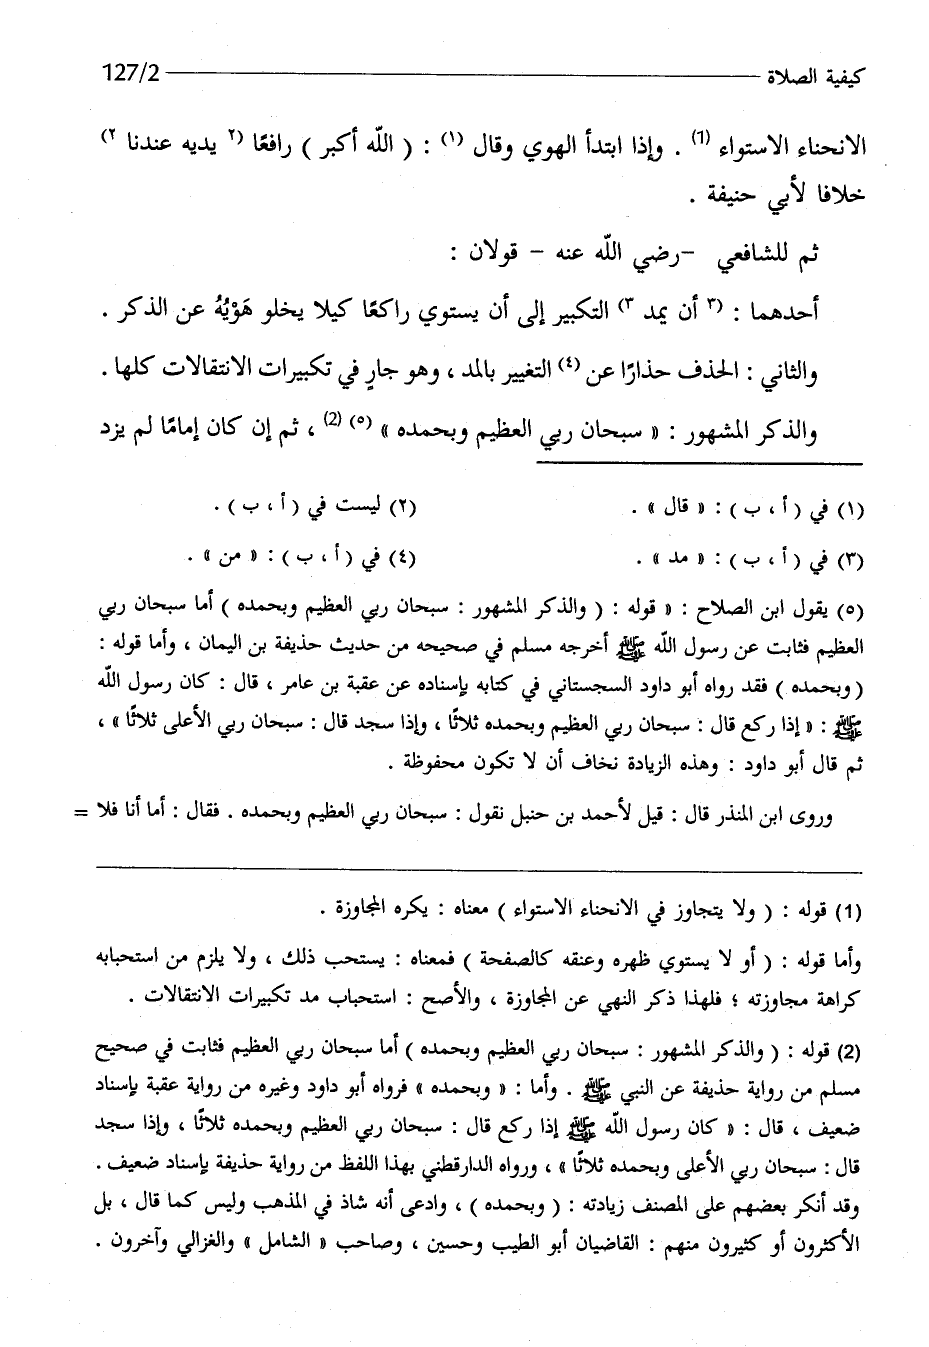 كيفية الصلاة 127/2
الانحناء الاستواء (٦) . وإذا ابتدأ الهوي وقال (١) : ( اللّه أكبر ) رافعًا (٢ يديه عندنا ٢)
خلافا لأبي حنيفة .
ثم للشافعي -رضي اللّه عنه - قولان :
أحدهما : (٣ أن يمد ٣) التكبير إلى أن يستوي راكعًا كيلا يخلو هَوْيُهُ عن الذكر .
والثاني : الحذف حذارًا عن (٤) التغيير بالمد ، وهو جارٍ في تكبيرات الانتقالات كلها .
والذكر المشهور : « سبحان ربي العظيم وبحمده » (٥) (2) ، ثم إن كان إمامًا لم يزد
(١) في ( أ ، ب ) : « قال » . (٢) ليست في ( أ ، ب ) .
(٣) في ( أ ، ب ) : « مد » . (٤) في ( أ ، ب ) : « من » .
(٥) يقول ابن الصلاح : « قوله : ( والذكر المشهور : سبحان ربي العظيم وبحمده ) أما سبحان ربي
العظيم فثابت عن رسول اللّه ﷺ أخرجه مسلم في صحيحه من حديث حذيفة بن اليمان ، وأما قوله :
( وبحمده ) فقد رواه أبو داود السجستاني في كتابه بإسناده عن عقبة بن عامر ، قال : كان رسول اللّه
ﷺ : « إذا ركع قال : سبحان ربي العظيم وبحمده ثلاثًا ، وإذا سجد قال : سبحان ربي الأعلى ثلاثًا » ،
ثم قال أبو داود : وهذه الزيادة نخاف أن لا تكون محفوظة .
وروى ابن المنذر قال : قيل لأحمد بن حنبل نقول : سبحان ربي العظيم وبحمده . فقال : أما أنا فلا =
(1) قوله : ( ولا يتجاوز في الانحناء الاستواء ) معناه : يكره المجاوزة .
وأما قوله : ( أو لا يستوي ظهره وعنقه كالصفحة ) فمعناه : يستحب ذلك ، ولا يلزم من استحبابه
كراهة مجاوزته ؛ فلهذا ذكر النهي عن المجاوزة ، والأصح : استحباب مد تكبيرات الانتقالات .
(2) قوله : ( والذكر المشهور : سبحان ربي العظيم وبحمده ) أما سبحان ربي العظيم فثابت في صحيح
مسلم من رواية حذيفة عن النبي ﷺ . وأما : « وبحمده » فرواه أبو داود وغيره من رواية عقبة بإسناد
ضعيف ، قال : « كان رسول اللّه ﷺ إذا ركع قال : سبحان ربي العظيم وبحمده ثلاثًا ، وإذا سجد
قال : سبحان ربي الأعلى وبحمده ثلاثًا » ، ورواه الدارقطني بهذا اللفظ من رواية حذيفة بإسناد ضعيف .
وقد أنكر بعضهم على المصنف زيادته : ( وبحمده ) ، وادعى أنه شاذ في المذهب وليس كما قال ، بل
الأكثرون أو كثيرون منهم : القاضيان أبو الطيب وحسين ، وصاحب « الشامل » والغزالي وآخرون .